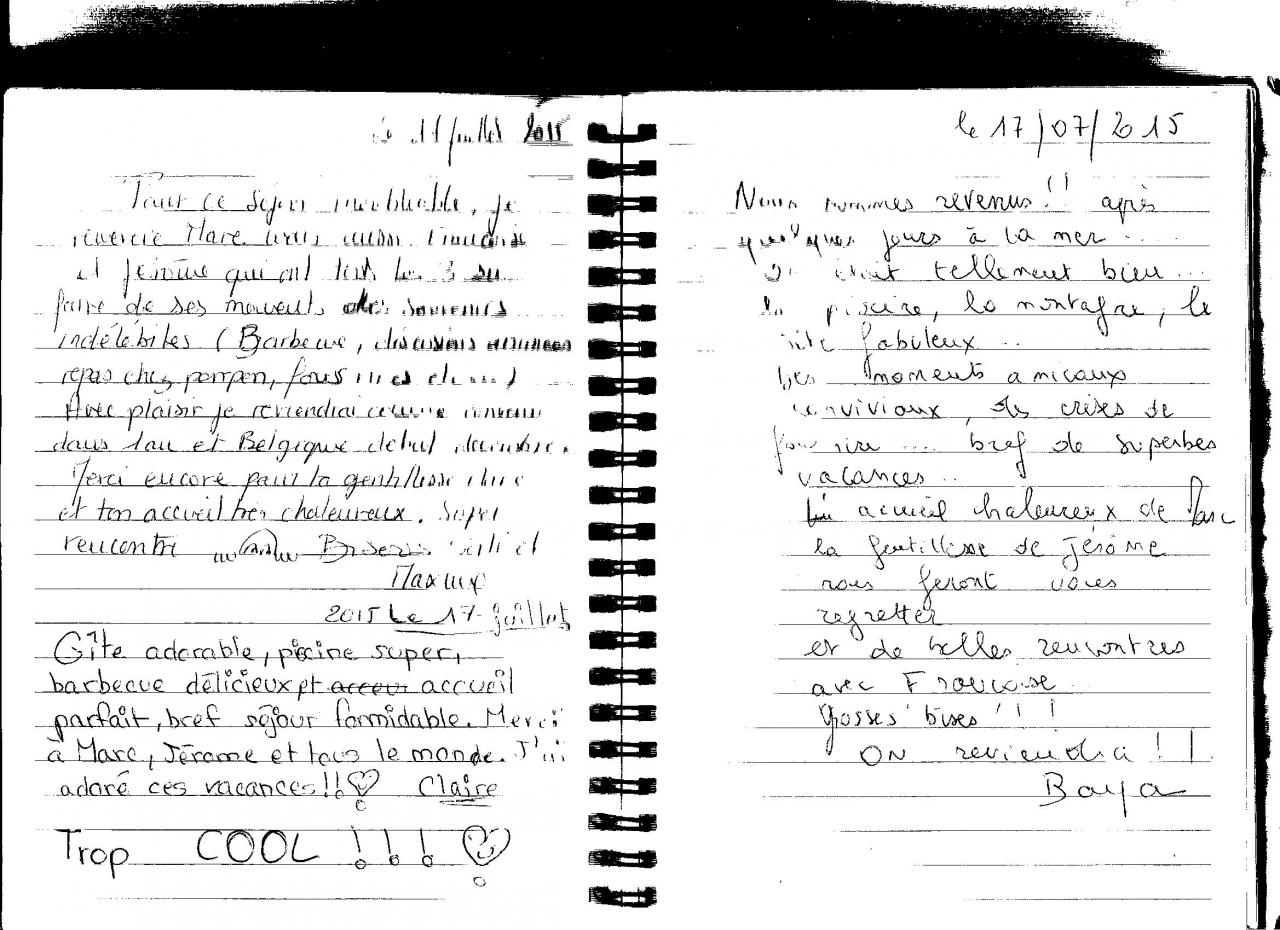 juillet 2015
Pour ce séjour inoubliable, je
remercie Marc mais aussi Françoise
et Jérôme qui ont tous les 3 su
faire de ses moments des souvenirs
indélébiles (Barbecue, discussions
repas chez pompon, fous
Avec plaisir je reviendrai comme
dans l'eau et Belgique début décembre.
Merci encore pour ta gentillesse
et ton accueil très chaleureux. Super
rencontre Bises et
Maxime
2015 Le 17 juillet
Gîte adorable, piscine super,
barbecue délicieux et accueil
parfait, bref séjour formidable. Merci
à Marc, Jérome et tous le monde. J'ai
adoré ces vacances!!♡ Claire
Trop COOL !!! ♡
le 17/07/2015
Nous sommes revenus!! après
quelques jours à la mer ....
On était tellement bien...
la piscine, la montagne, le
site fabuleux ...
Des moments amicaux
conviviaux, des crises de
fou rire .... bref de superbes
vacances...
accueil chaleureux de Marc
la gentillesse de Jérôme
nous feront vous
regretter
et de belles rencontres
avec Françoise
Grosses bises!!!
ON reviendra!!
Baya